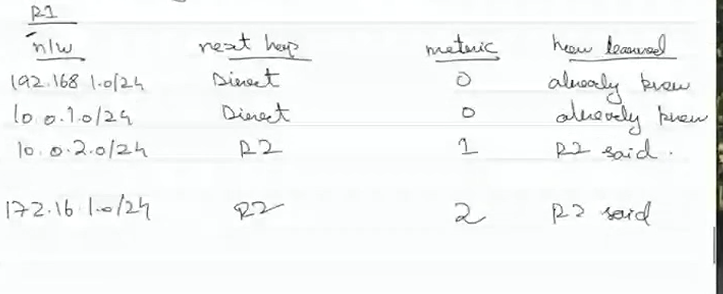 R1
n/w next hop metric how learned
192.168 1.0/24 Direct 0 already knew
10.0.1.0/24 Direct 0 already knew
10.0.2.0/24 R2 1 R2 said.
172.16.1.0/24 R2 2 R2 said